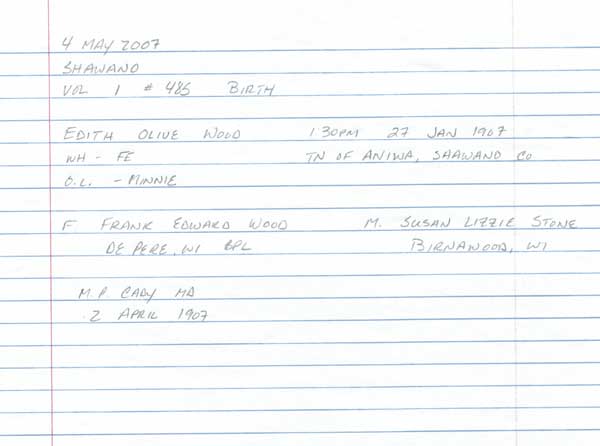 4 MAY 2007
SHAWANO
VOL 1 # 485 BIRTH
EDITH OLIVE WOOD 1:30PM 27 JAN 1907
WH - FE TN OF ANIWA, SHAWANO CO
O.L. - MINNIE
F FRANK EDWARD WOOD M. SUSAN LIZZIE STONE
DE PERE, WI BPL BIRNAWOOD, WI
M.P. CADY MD
2 APRIL 1907